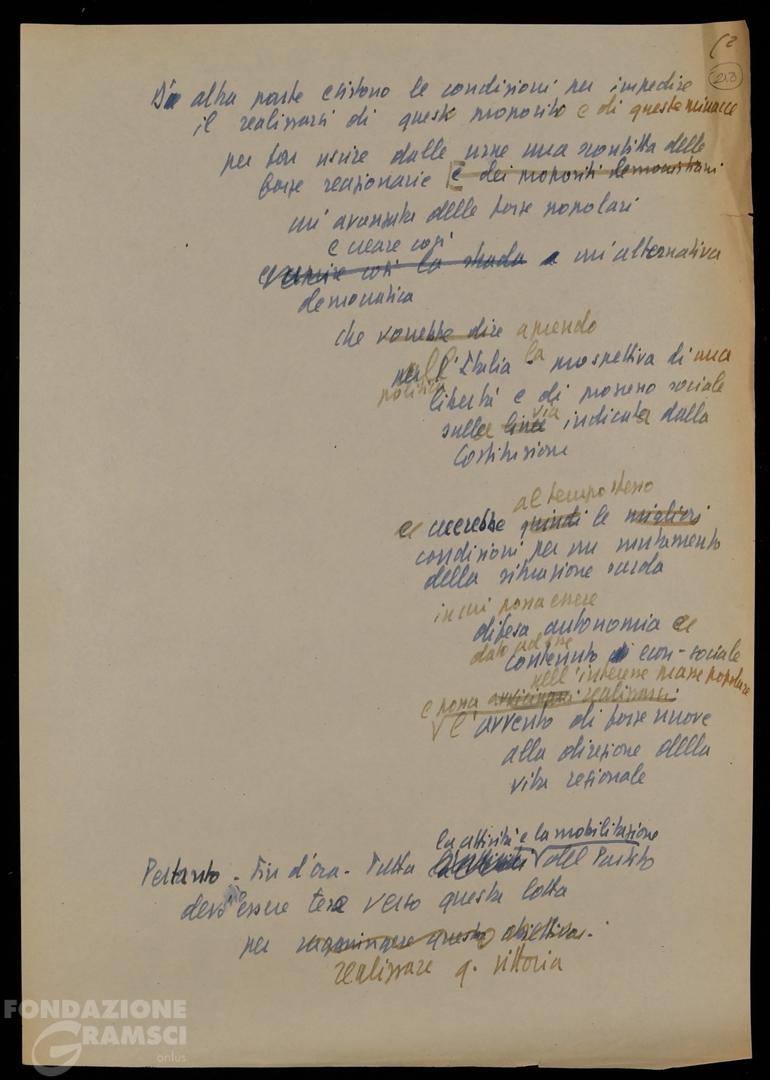 2
213
Da altra parte esistono le condizioni per impedire
il realizzarsi di questo proposito e di queste minacce
per far uscire dalle urne una sconfitta delle
forze reazionarie [e dei propositi democristiani
un'avanzata delle forze popolari
e creare così
e aprire così la strada a un'alternativa
democratica
che vorrebbe dire aprendo
all'Italia la prospettiva di una
politica
libertà e di progresso sociale
via
sulla linea indicata dalla
Costituzione
al tempo stesso
e creerebbe quindi le migliori
condizioni per un mutamento
della situazione sarda
in cui possa essere
difesa autonomia e
dato ad essa
contenuto di econ-sociale
nell'interesse masse popolare
e possa avvicinarsi realizzarsi
l'avvento di forze nuove
alla direzione della
vita regionale
la attività e la mobilitazione
Pertanto - Fin d'ora - Tutta l'attività del Partito
deve essere tesa verso questa lotta
per raggiungere questo obiettivo.
realizzare q. vittoria
FONDAZIONE
GRAMSCI
onlus